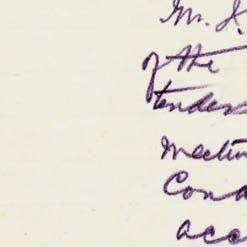 Mr. J.
of the
tender
Meetin
Con
acc